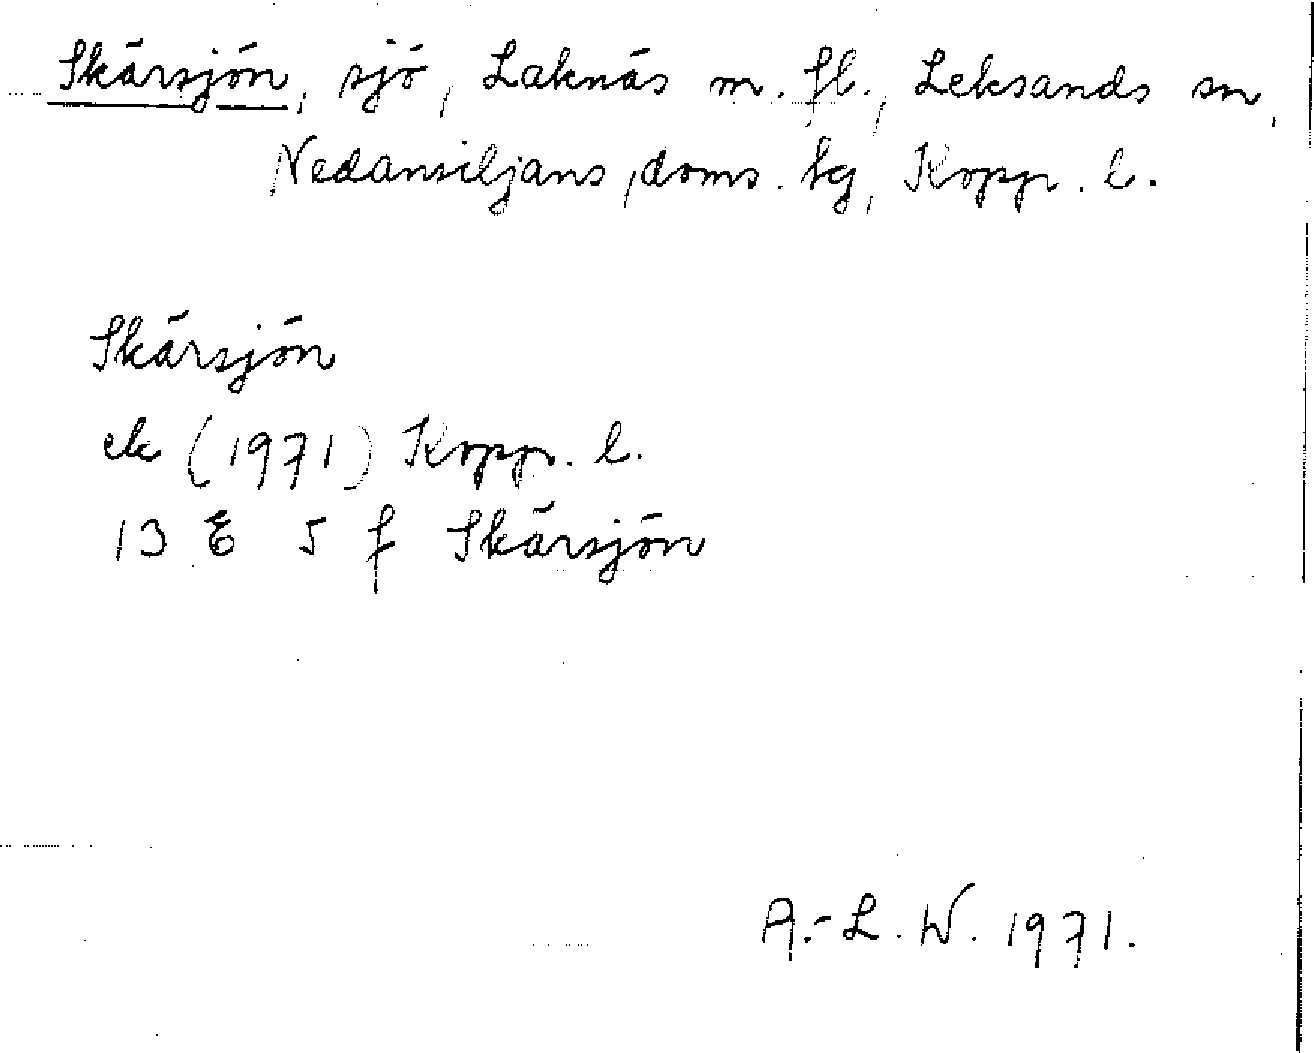 Skärsjön, sjö, Laknäs m. fl., Leksands sn,
Nedansiljans doms. tg, Kopp. l.
Skärsjön
ek (1971) Kopp. l.
13 E 5 f Skärsjön
A.-L. W. 1971.